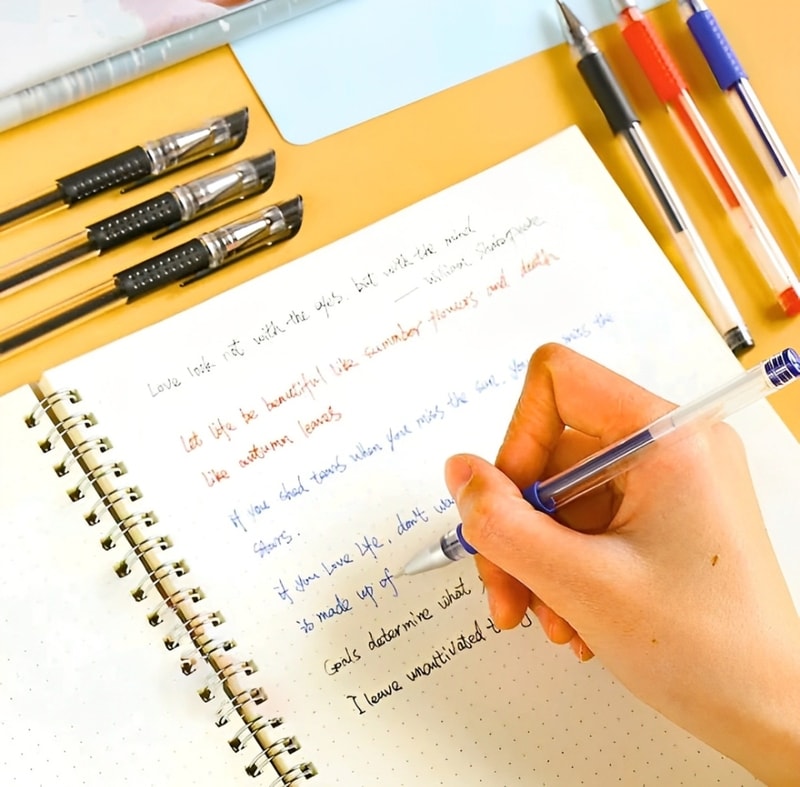 Love look not with the eyes. but with the mind
— William Shakespeare
Let life be beautiful like summber flowers and death
like autumn leaves
If you shed tears when you miss the sun. you miss the
stars.
if you love life. don't
is made up of
Goals determine what
I leave unautivated